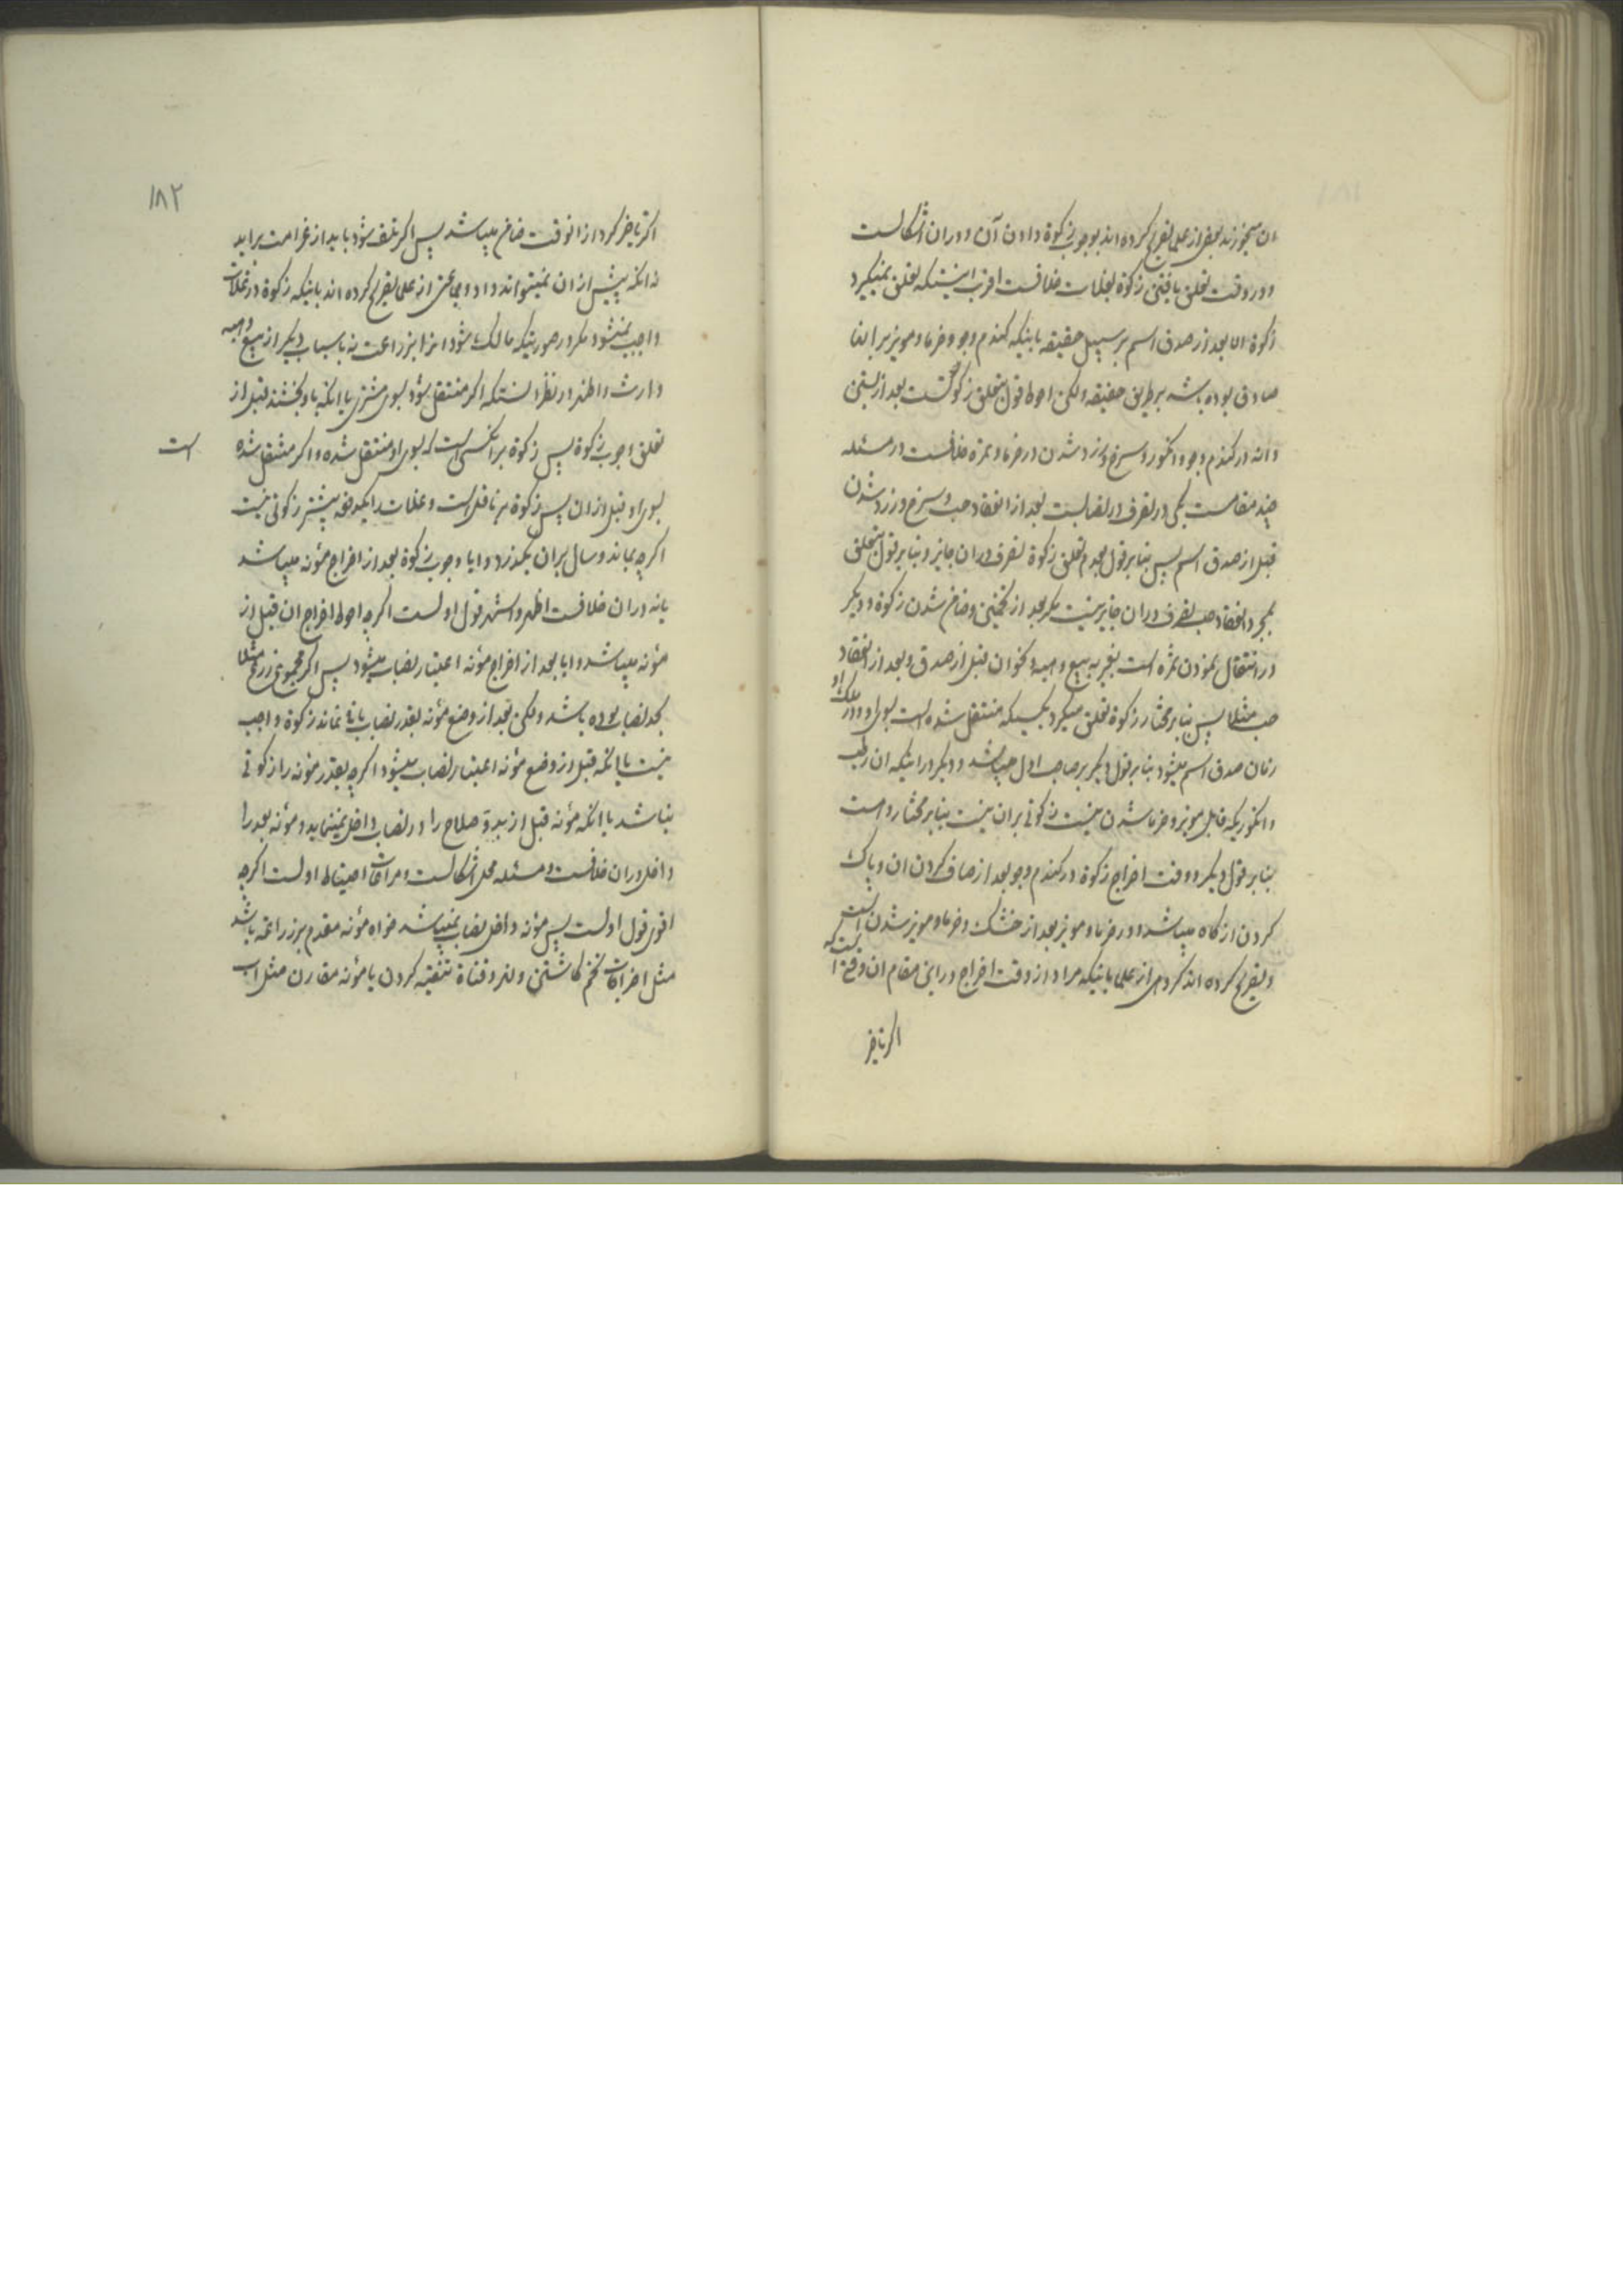 ان میخورند بعضی از علما تصریح کرده اند بوجوب زکوة دادن آن و دران اشکالست
و در وقت تعلق یافتن زکوة بغلات خلافست اقرب اینستکه تعلق نمیگیرد
زکوة الا بعد از صدق اسم بر سبیل حقیقه باینکه گندم و جو و خرما و مویز بر انها
صادق بوده باشد بر طریق حقیقه ولکن احوط قول بتعلق زکوتست بعد از بستن
دانه در گندم و جو و انگور و سرخ و زرد شدن در خرما و ثمره خلافست در مسئله
چند مقامست یکی در تصرف در نصابست بعد از انعقاد حب و سرخ و زرد شدن
قبل از صدق اسم پس بنابر قول بعدم تعلق زکوة تصرف دران جایز و بنابر قول بتعلق
بمجرد انعقاد حب تصرف دران جایز نیست مگر بعد از تخمین و ضامن شدن زکوة و دیگر
در انتقال نمودن ثمره است بغیر به بیع و هبه و نحو ان قبل از صدق و بعد از انعقاد
حب مثلا پس بنابر مختار زکوة تعلق میگیرد بکسیکه منتقل شده است بسوی او و در ملک او
زمان صدق اسم میشود بنابر قول دیگر بر صاحب اول میباشد و دیگر در اینکه ان رطب
و انگوریکه قابل مویز و خرما شدن نیست زکوتی بران نیست بنابر مختار و هست
بنابر قول دیگر و وقت اخراج زکوة در گندم و جو بعد از صاف کردن ان و پاک
کردن از کاه میباشد و در خرما و مویز بعد از خشک و خرما و مویز شدن است
و تصریح کرده اند گروهی از علما باینکه مراد از وقت اخراج در این مقام ان وقتیست که
اگر تاخیر
۱۸۲
اگر تاخیر کرد از انوقت ضامن میباشد پس اگر تلف شود باید از غرامت براید
نه انکه پیش از ان نمیتواند داد و جمعی از علما تصریح کرده اند باینکه زکوة در غلات
واجب نمیشود مگر در صورتیکه مالک شود انرا بزراعت نه باسباب دیگر از بیع و هبه
و ارث و اظهر در نظر انستکه اگر منتقل شود بسوی مشتری یا انکه باو بخشند قبل از
تعلق وجوب زکوة پس زکوة بر انکسی است که بسوی او منتقل شده و اگر منتقل شده است
بسوی او قبل از ان پس زکوة بر ناقل است و غلات را یکدفعه بیشتر زکوتی نیست
اگرچه بماند و سال بران بگذرد و ایا وجوب زکوة بعد از اخراج مؤنه میباشد
یا نه دران خلافست اظهر و اشهر قول اولست اگرچه احوط اخراج ان قبل از
مؤنه میباشد و ایا بعد از اخراج مؤنه اعتبار نصاب میشود پس اگر مجموع زرع مثلا
بحد نصاب بوده باشد ولکن بعد از وضع مؤنه بقدر نصاب باقی نماند زکوة واجب
نیست یا انکه قبل از وضع مؤنه اعتبار نصاب میشود اگرچه بقدر مؤنه را زکوتی
نباشد یا انکه مؤنه قبل از بدو صلاح را در نصاب داخل نمینماید و مؤنه بعد را
داخل دران خلافست و مسئله محل اشکالست و مراعات احتیاط اولست اگرچه
اقوی قول اولست پس مؤنه داخل نصاب نمیباشد خواه مؤنه مقدم بر زراعة باشد
مثل اخراجات تخم کاشتن و نهر و قناة تنقیه کردن یا مؤنه مقارن مثل اب